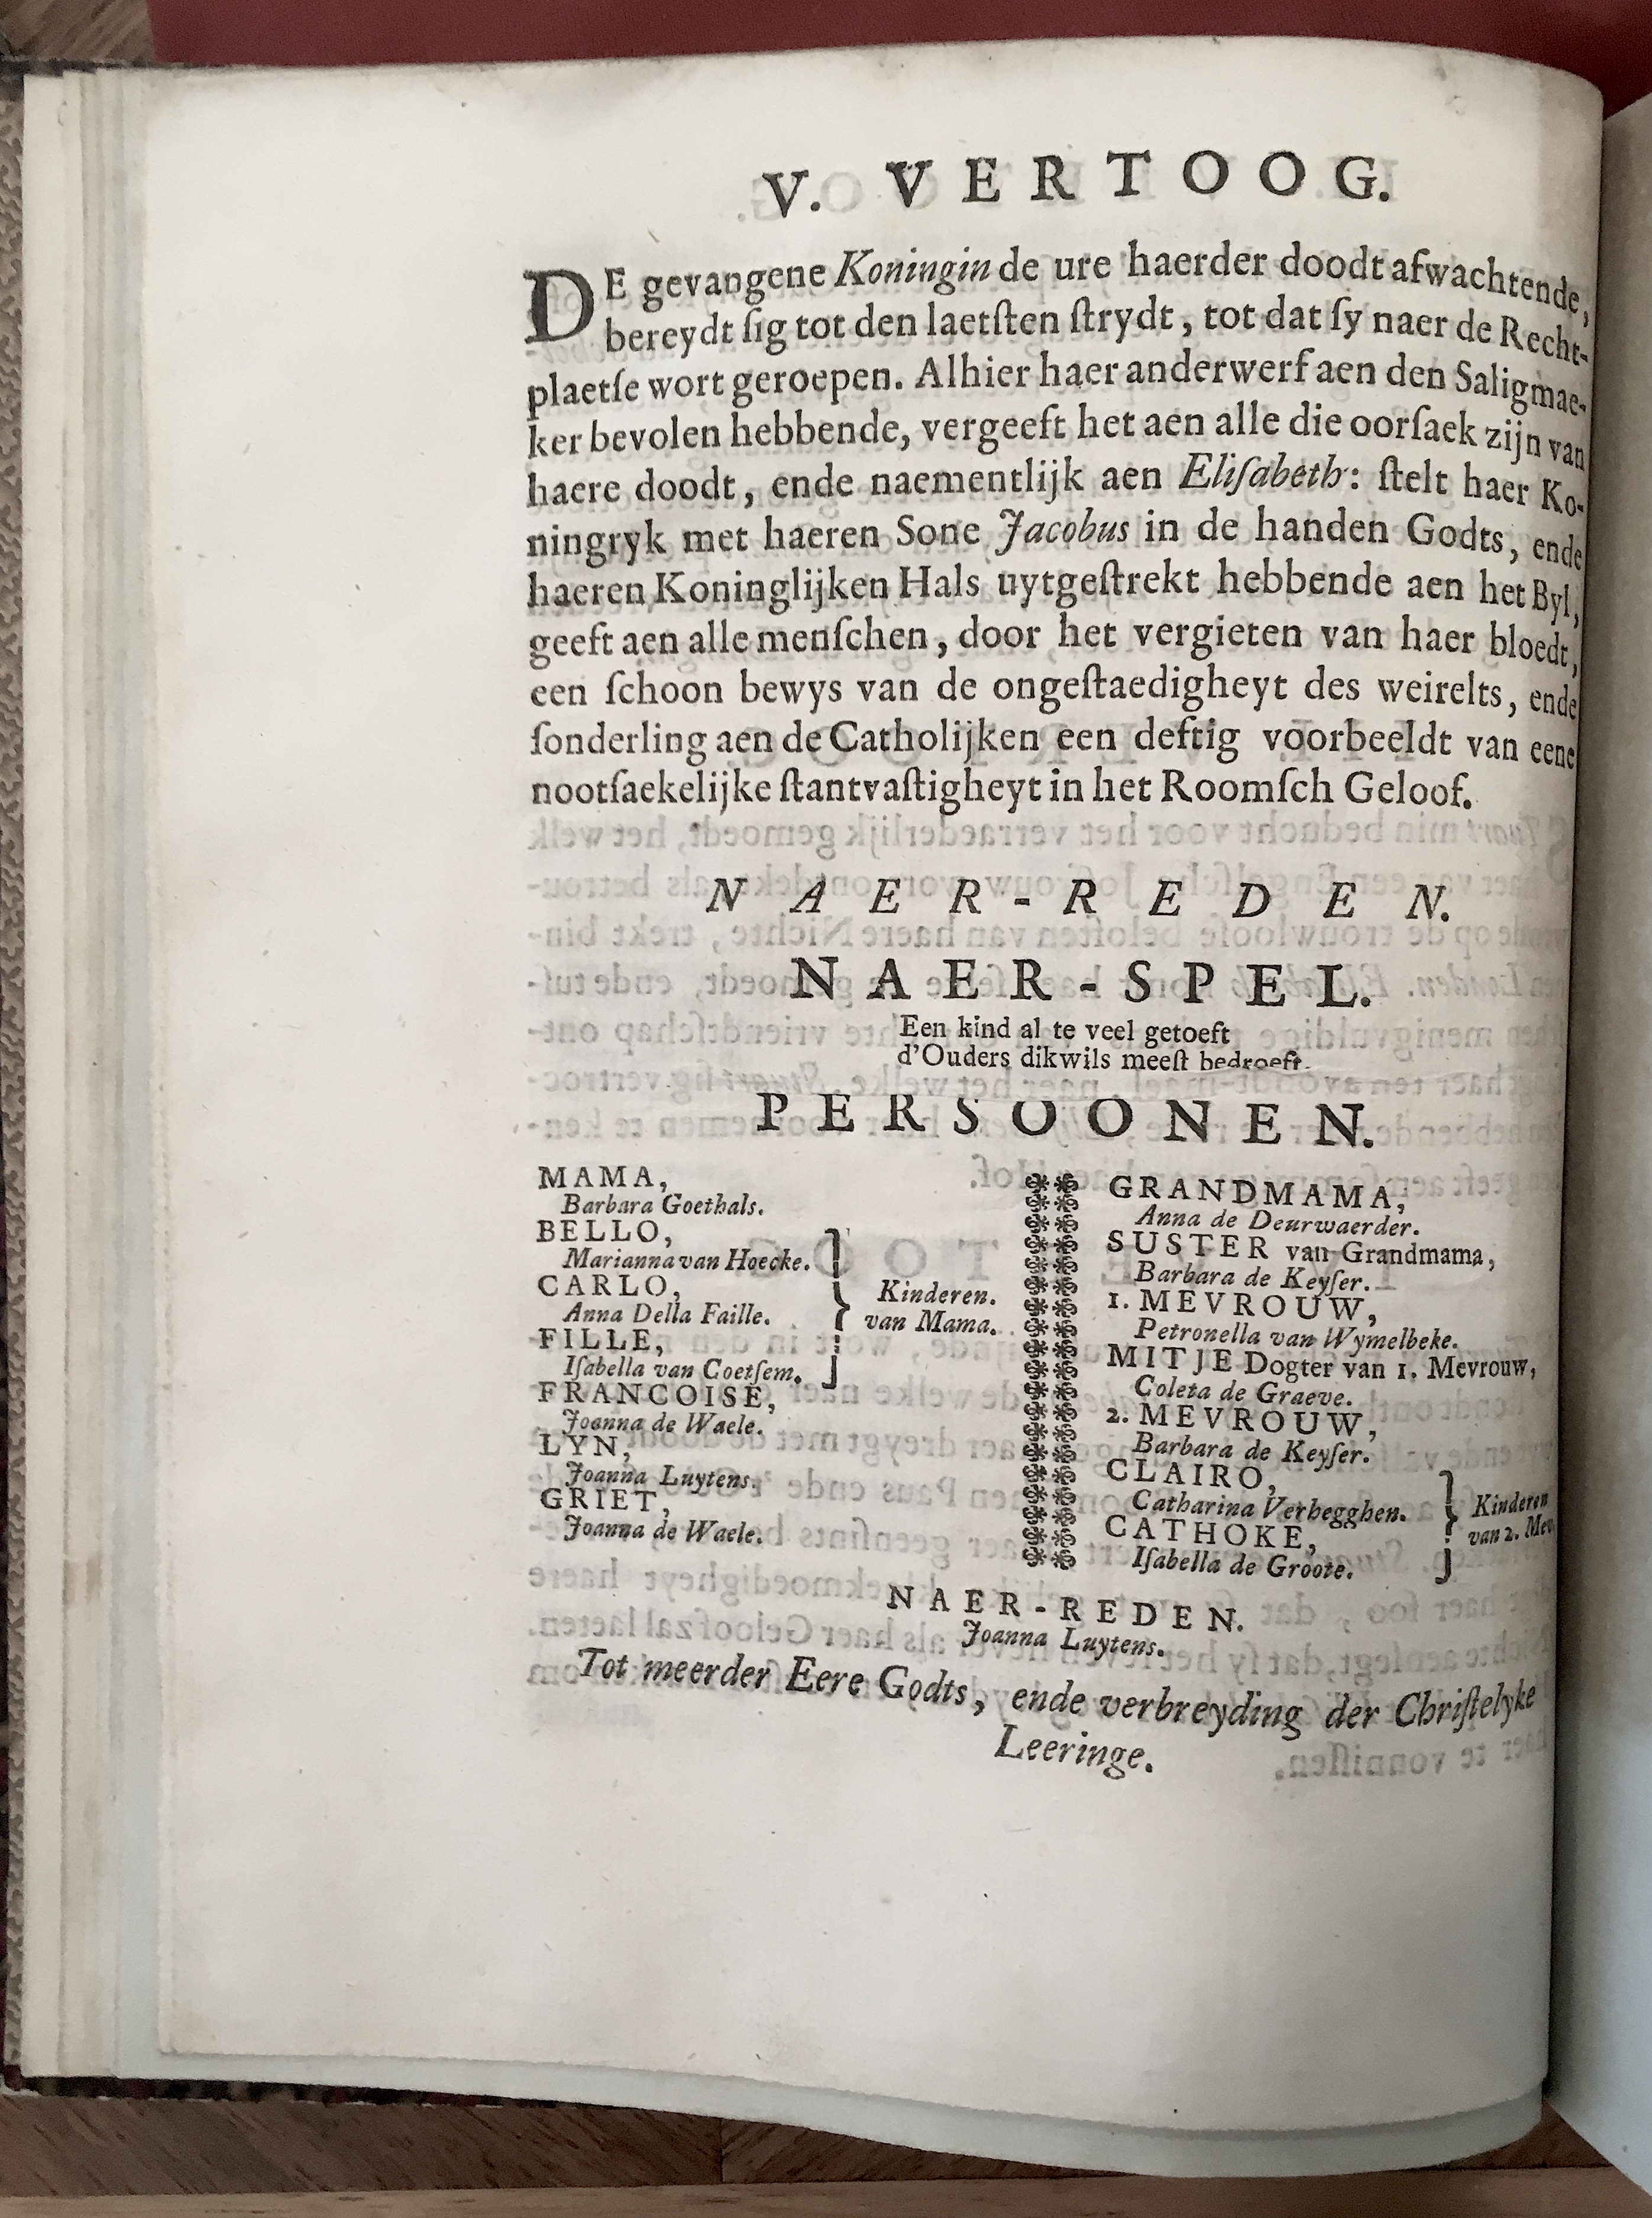 V. VERTOOG.
DE gevangene Koningin de ure haerder doodt afwachtende,
bereydt ſig tot den laetſten ſtrydt, tot dat ſy naer de Recht-
plaetſe wort geroepen. Alhier haer anderwerf aen den Saligmae-
ker bevolen hebbende, vergeeft het aen alle die oorſaek zijn van
haere doodt, ende naementlijk aen Eliſabeth: ſtelt haer Ko-
ningryk met haeren Sone Jacobus in de handen Godts, ende
haeren Koninglijken Hals uytgeſtrekt hebbende aen het Byl,
geeft aen alle menſchen, door het vergieten van haer bloedt,
een ſchoon bewys van de ongeſtaedigheyt des weirelts, ende
ſonderling aen de Catholijken een deftig voorbeeldt van eene
nootſaekelijke ſtantvaſtigheyt in het Roomſch Geloof.
NAER-REDEN.
NAER-SPEL.
Een kind al te veel getoeft
d'Ouders dikwils meeſt bedroeft.
PERSOONEN.
MAMA,
Barbara Goethals.
BELLO,
Marianna van Hoecke.
CARLO,
Anna Della Faille.
FILLE,
Iſabella van Coetſem.
Kinderen.
van Mama.
FRANCOISE,
Joanna de Waele.
LYN,
Joanna Luytens.
GRIET,
Joanna de Waele.
GRANDMAMA,
Anna de Deurwaerder.
SUSTER van Grandmama,
Barbara de Keyſer.
1. MEVROUW,
Petronella van Wymelbeke.
MITJE Dogter van 1. Mevrouw,
Coleta de Graeve.
2. MEVROUW,
Barbara de Keyſer.
CLAIRO,
Catharina Verhegghen.
CATHOKE,
Iſabella de Groote.
Kinderen
van 2. Mev.
NAER-REDEN.
Joanna Luytens.
Tot meerder Eere Godts, ende verbreyding der Chriſtelyke
Leeringe.